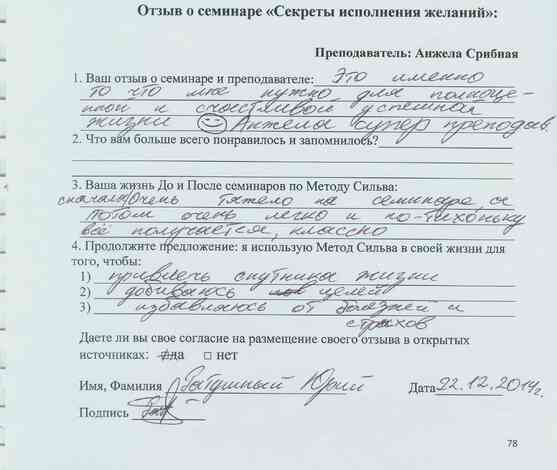 Отзыв о семинаре «Секреты исполнения желаний»:
Преподаватель: Анжела Срибная
1. Ваш отзыв о семинаре и преподавателе: Это именно
то что мне нужно для полноце-
нной и счастливой успешной
жизни ☺ Анжела супер преподав.
2. Что вам больше всего понравилось и запомнилось?
3. Ваша жизнь До и После семинаров по Методу Сильва:
сначала очень тяжело на семинаре, а
потом очень легко и по-тихоньку
всё получается, классно
4. Продолжите предложение: я использую Метод Сильва в своей жизни для
того, чтобы:
1) привлечь спутника жизни
2) добиваюсь целей
3) избавляюсь от болезней и
страхов
Даете ли вы свое согласие на размещение своего отзыва в открытых
источниках: да □ нет
Имя, Фамилия Юрий Дата 22.12.2014г.
Подпись
78